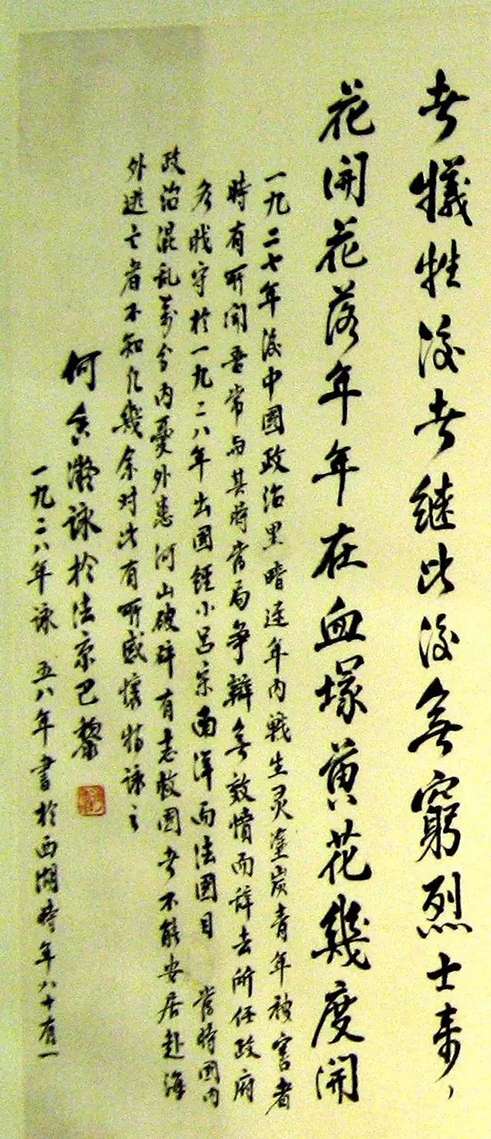 者犧牲後者繼此後無窮烈士來
花開花落年年在血塚黃花幾度開
一九二七年後中國政治黑暗連年內戰生灵塗炭青年被害者
時有所聞吾常与其時當局爭辯無效憤而辭去所任政府
於一九二八年出國經小呂宋南洋而法國目 當時國內
政治混乱萬分內憂外患河山破碎有志救國者不能安居赴海
外逃亡者不知凡幾余对此有所感懷特詠之
何香凝詠於法京巴黎
一九二八年詠 五八年書於西湖時年八十有一